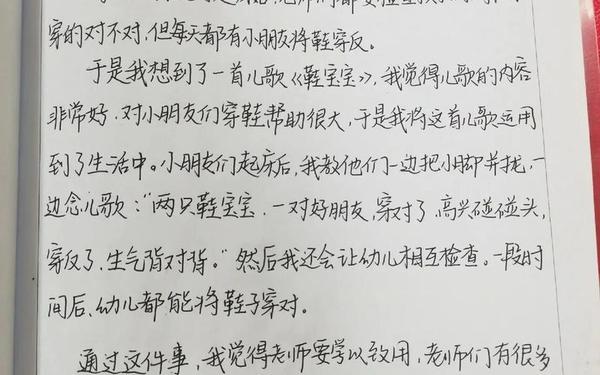 穿的对不对,但每天都有小朋友将鞋穿反。
于是我想到了一首儿歌《鞋宝宝》,我觉得儿歌的内容
非常好,对小朋友们穿鞋帮助很大,于是我将这首儿歌运用
到了生活中。小朋友们起床后,我教他们一边把小脚并拢,一
边念儿歌:"两只鞋宝宝,一对好朋友,穿对了,高兴碰碰头,
穿反了,生气背对背。"然后我还会让幼儿相互检查。一段时
间后,幼儿都能将鞋子穿对。
通过这件事,我觉得老师要学以致用,老师们有很多